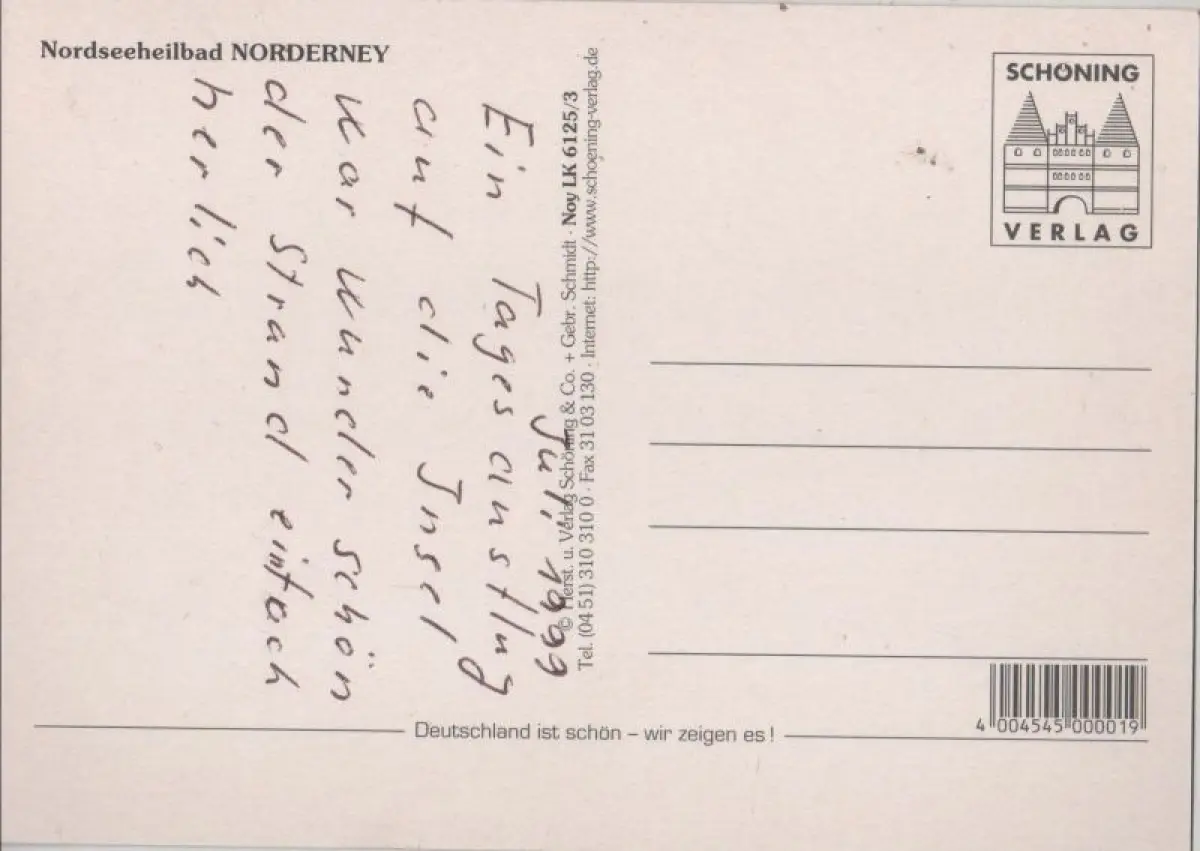 Nordseeheilbad NORDERNEY
Juli 1999
Ein Tagesausflug
auf die Insel
war wunderschön
der Strand einfach
herlich
© Herst. u. Verlag Schöning & Co. + Gebr. Schmidt · Noy LK 6125/3
Tel. (04 51) 310 310 0 · Fax 31 03 130 · Internet: http://www.schoening-verlag.de
SCHÖNING
VERLAG
Deutschland ist schön – wir zeigen es!
4 004545 000019